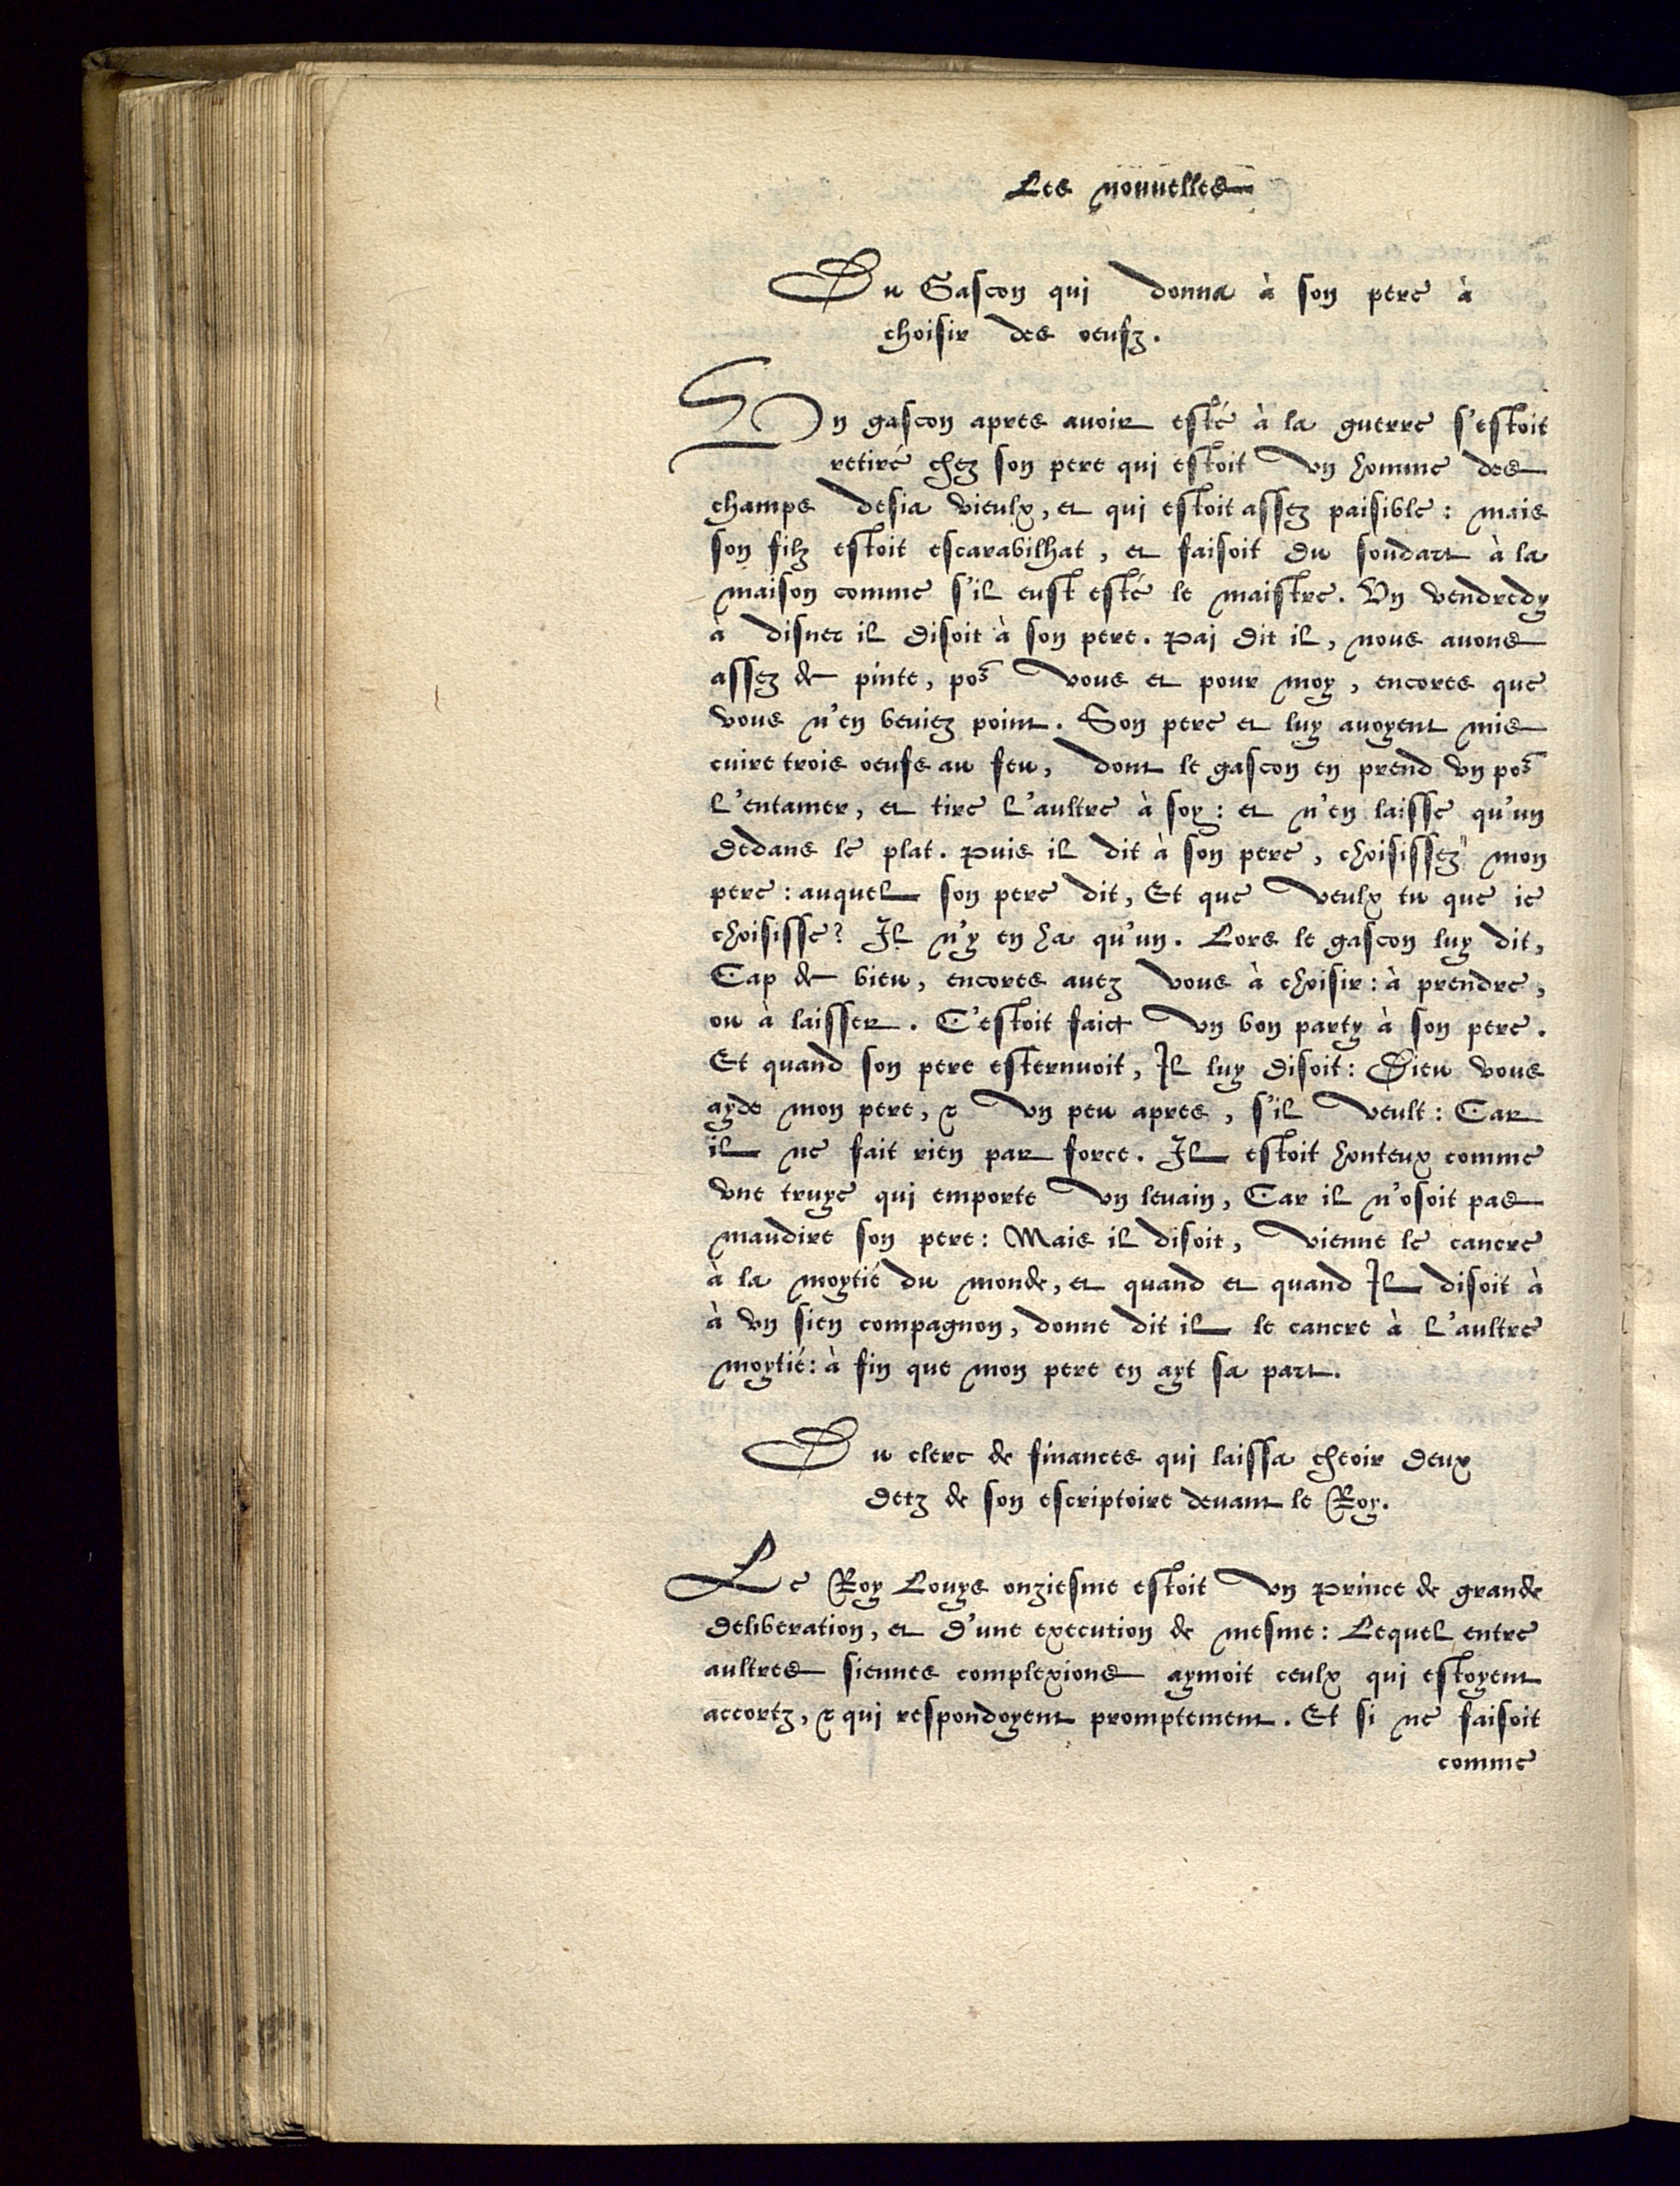 Les nouuelles
Du Gascon qui donna à son pere à
choisir des oeufz.
Vn gascon apres auoir esté à la guerre s'estoit
retiré chez son pere qui estoit vn homme des
champs desia vieulx, et qui estoit assez paisible: mais
son filz estoit escarabilhat, et faisoit du soudart à la
maison comme s'il eust esté le maistre. Vn vendredy
à disner il disoit à son pere. Pai dit il, nous auons
assez de pinte, por vous et pour moy, encores que
vous n'en beuiez point. Son pere et luy auoyent mis
cuire trois oeufs au feu, dont le gascon en prend vn por
l'entamer, et tire l'aultre à soy: et n'en laisse qu'un
dedans le plat. Puis il dit à son pere, choisissez mon
pere: auquel son pere dit, Et que veulx tu que ie
choisisse? Il n'y en ha qu'un. Lors le gascon luy dit,
Cap de bieu, encores auez vous à choisir: à prendre,
ou à laisser. C'estoit faict vn bon party à son pere.
Et quand son pere esternuoit, Il luy disoit: Dieu vous
ayde mon pere, & vn peu apres, s'il veult: Car
il ne fait rien par force. Il estoit honteux comme
vne truye qui emporte vn leuain, Car il n'osoit pas
maudire son pere: Mais il disoit, vienne le cancre
à la moytié du monde, et quand et quand Il disoit à
à vn sien compagnon, donne dit il le cancre à l'aultre
moytié: à fin que mon pere en ayt sa part.
Du clerc de finances qui laissa cheoir deux
detz de son escriptoire deuant le Roy.
Le Roy Louys onziesme estoit vn prince de grande
deliberation, et d'une execution de mesme: Lequel entre
aultres siennes complexions aymoit ceulx qui estoyent
accortz, & qui respondoyent promptement. Et si ne faisoit
comme